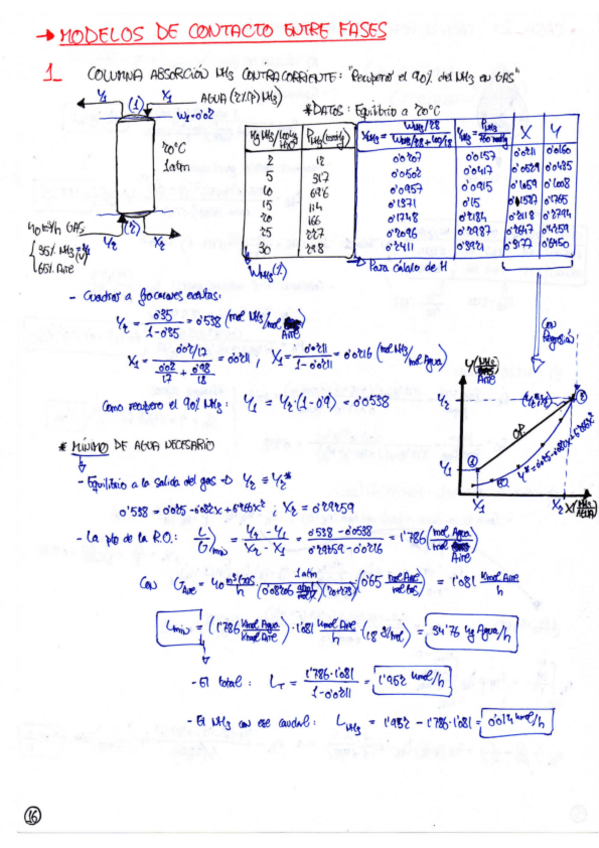 → MODELOS DE CONTACTO ENTRE FASES
1 COLUMNA ABSORCIÓN NH3 CONTRACORRIENTE: "Recuperar el 90% del NH3 en GAS"
Y1 X1
AGUA (2%(P) NH3)
(1) W1=0'02
20°C
1atm
40 m3/h GAS:
35% NH3 (V)
65% Aire
(2)
Y2 X2
* DATOS: Equilibrio a 20°C
Kg NH3/100kg H2O PNH3 (mmHg) X Y
2 12 0'0207 0'0157 0'0211 0'0160
5 31'7 0'0502 0'0417 0'0529 0'0435
10 69'6 0'0957 0'0915 0'1059 0'1008
15 114 0'1371 0'15 0'1587 0'1765
20 166 0'1748 0'2184 0'2118 0'2794
25 227 0'2096 0'2987 0'2647 0'4259
30 298 0'2411 0'3921 0'3177 0'6450
WNH3(1)
→ Para cálculo de H
- Cuadrar a fracciones exentas:
Y2 = 0'35/1-0'35 = 0'538 (mol NH3/mol Aire)
X1 = 0'02/17 / 0'02/17 + 0'98/18 = 0'0211 ; X1 = 0'0211/1-0'0211 = 0'0216 (mol NH3/mol Agua)
Como recupero el 90% NH3: Y1 = Y2·(1-0'9) = 0'0538
Con Regresión
Y2
Y1
OP
X1 X2
* MÍNIMO DE AGUA NECESARIO
- Equilibrio a la salida del gas → Y2 ≡ Y2*
0'538 = 0'025-0'82X+6'266X² ; X2 = 0'29259
- La pte de la R.O.: L/G)min = Y2-Y1/X2-X1 = 0'538-0'0538/0'29259-0'0216 = 1'786 (mol Agua/mol Aire)
Con GAire = 40 m3 Gas/h · 1atm/(0'08206 atm·l/mol·K)(20+273) · (0'65 mol Aire/mol Gas) = 1'081 Kmol Aire/h
Lmin = (1'786 Kmol Agua/Kmol Aire) · 1'081 Kmol Aire/h · (18 g/mol) = 34'76 Kg Agua/h
- El total: LT = 1'786·1'081/1-0'0211 = 1'952 Kmol/h
- El NH3 con ese caudal: LNH3 = 1'952 - 1'786·1'081 = 0'014 Kmol/h
16